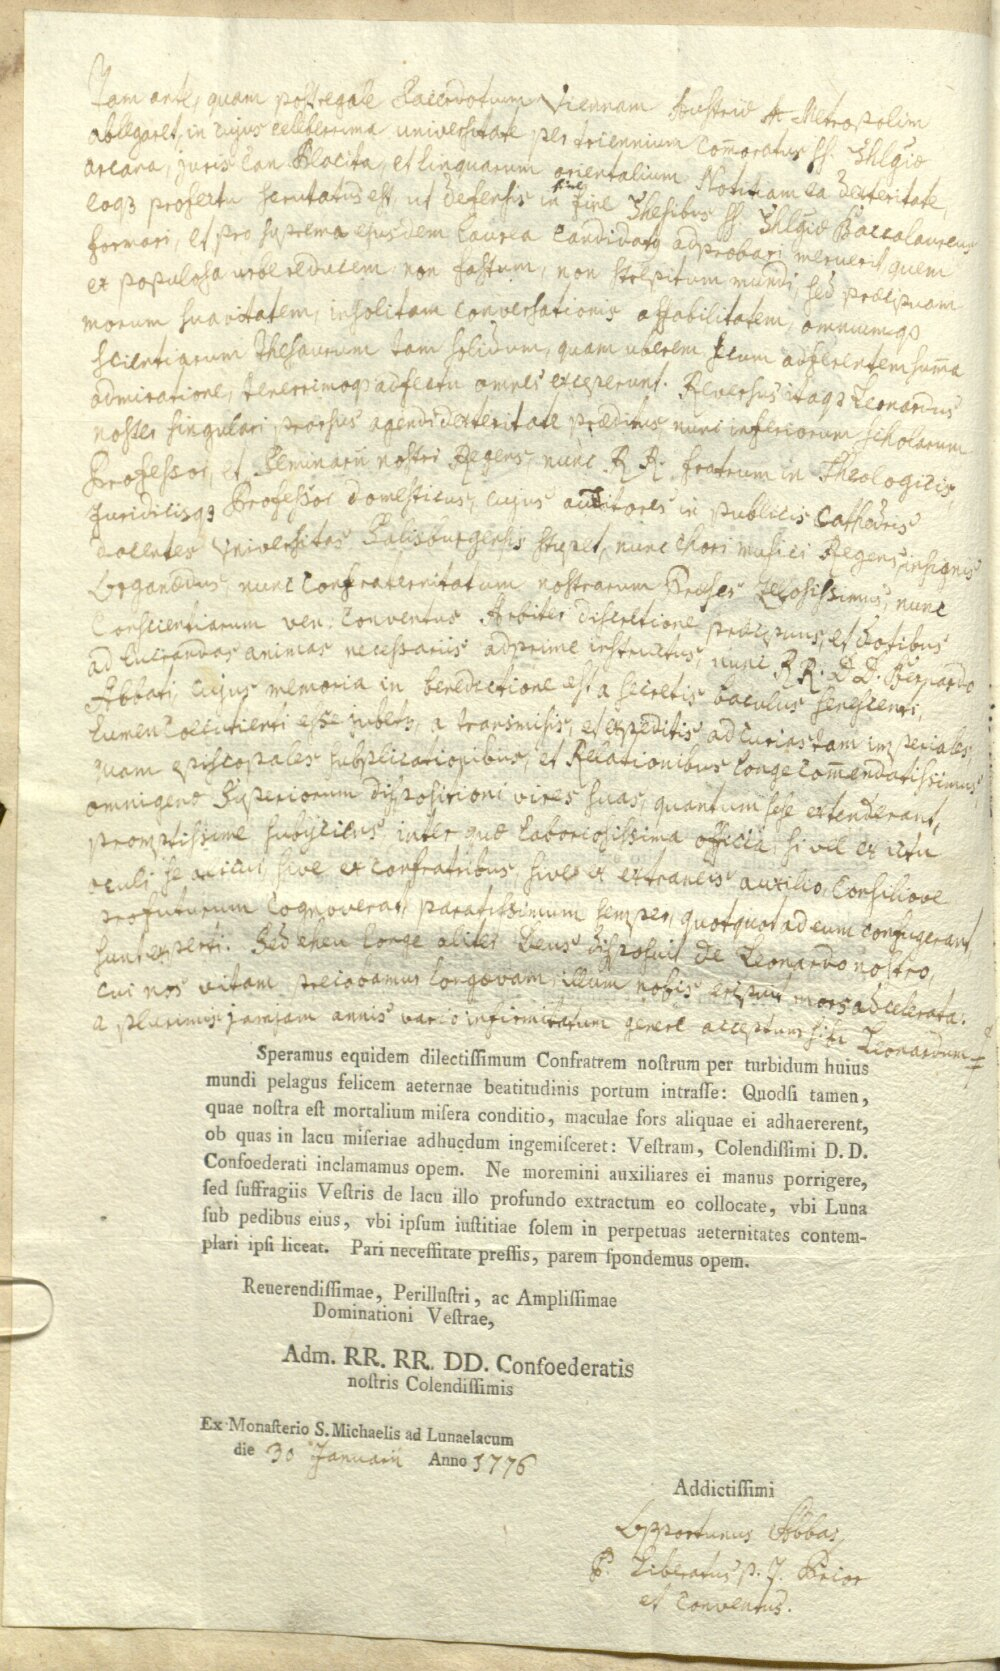 Tam ante, quam post regale Sacerdotium Viennam Austriæ Metropolim
ablegaret, in cujus celeberrima universitate per triennium com̄oratus SS. Thlgiæ
arcana, juris Can. Placita, et linguarum orientalium Notitiam ea dexteritate,
eoqȝ profectu scrutatus est, ut defensis in fine Thesibus SS. Thlgiæ Baccalaureus
formari, et pro suprema ejusdem Laurea Candidatus adprobari meruerit, quem
ex populosa urbe reducem, non fastum, non strepitum mundi, sed præcipuam
morum suavitatem, insolitam conversationis affabilitatem, omniumqȝ
scientiarum thesaurum tam solidum, quam uberem secum adferentem sum̄a
admiratione, tenerrimoqȝ adfectu omnes exceperunt. Reversus itaqȝ Leonardus
noster singulari prorsus agendi dexteritate præditus, nunc inferiorum scholarum
Professor, et Seminarii nostri Regens, nunc R R. fratrum in Theologicis,
Juridicisqȝ Professor domesticus, cujus auditores in publicis Cathedris
docentes Universitas Salisburgensis stupet, nunc chori musici Regens, insignis
Organœdus, nunc Confraternitatum nostrarum Præses zelosissimus, nunc
Conscientiarum ven. Conventus Arbiter discretione præcipuus, et dotibus
ad lucrandas animas necessariis adprime instructus, nunc R R. D. D. Bernardo
Abbati, cujus memoria in benedictione est, a secretis baculus senescenti,
lumen cœcutienti esse jubetur, a transmissis, et expeditis ad curias tam imperiales,
quam episcopales supplicationibus, et Relationibus longe com̄endatissimus,
omnigenæ Superiorum dispositioni vires suas, quantum sese extenderant,
promptissime subjiciens inter quæ laboriosissima officia, si vel ex ictu
oculi se alicui, sive ex confratribus, sive ex extraneis auxilio, Consiliove
profuturum cognoverat, paratissimum semper, quotquot ad eum confugerant,
sunt experti. Sed eheu longe aliter Deus disposuit de Leonardo nostro,
cui nos vitam precabamur longævam, illum nobis eripuit mors adcelerata.
a plurimis jamjam annis vario infirmitatum genere acceptum sibi Leonardum
Speramus equidem dilectiſſimum Confratrem noſtrum per turbidum huius
mundi pelagus felicem aeternae beatitudinis portum intraſſe: Quodſi tamen,
quae noſtra eſt mortalium miſera conditio, maculae fors aliquae ei adhaererent,
ob quas in lacu miſeriae adhucdum ingemiſceret: Veſtram, Colendiſſimi D. D.
Confoederati inclamamus opem. Ne moremini auxiliares ei manus porrigere,
ſed ſuffragiis Veſtris de lacu illo profundo extractum eo collocate, vbi Luna
ſub pedibus eius, vbi ipſum iuſtitiae ſolem in perpetuas aeternitates contem-
plari ipſi liceat. Pari neceſſitate preſſis, parem ſpondemus opem.
Reuerendiſſimae, Perilluſtri, ac Ampliſſimae
Dominationi Veſtrae,
Adm. RR. RR. DD. Confoederatis
noſtris Colendiſſimis
Ex Monaſterio S. Michaelis ad Lunaelacum
die 30 Januarii Anno 1776
Addictiſſimi
Opportunus Abbas,
P. Liberatus p. t. Prior
et Conventus.